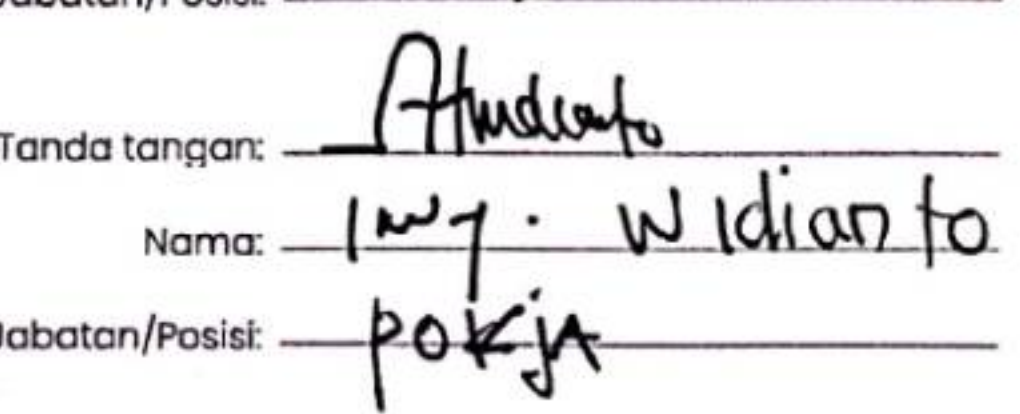 Jabatan/Posisi:
Tanda tangan:
Nama: I wy. Widianto
Jabatan/Posisi: POKJA